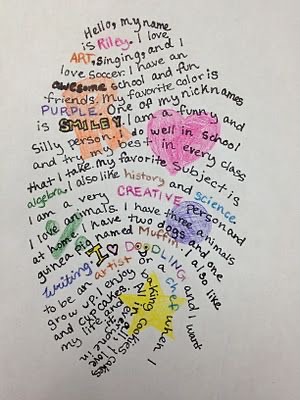 Hello, my name
is Riley. I love
ART, singing, and I
love soccer. I have an
awesome school and fun
friends. My favorite color is
PURPLE. One of my nicknames
is SMILEY. I am a funny and
silly person. I well in school
and try in every class
that I take my favorite subject is
algebra. I also like history and science
I am a very CREATIVE person and
I love animals. I have three animals
at home. I have two dogs and
guinea pig named Muffin. I also like
writing. I ♥ DOODLING and I want
to be an artist or a chef when I
grow up. I enjoy baking cookies, cakes
and cupcakes. All in
my life and everyone in